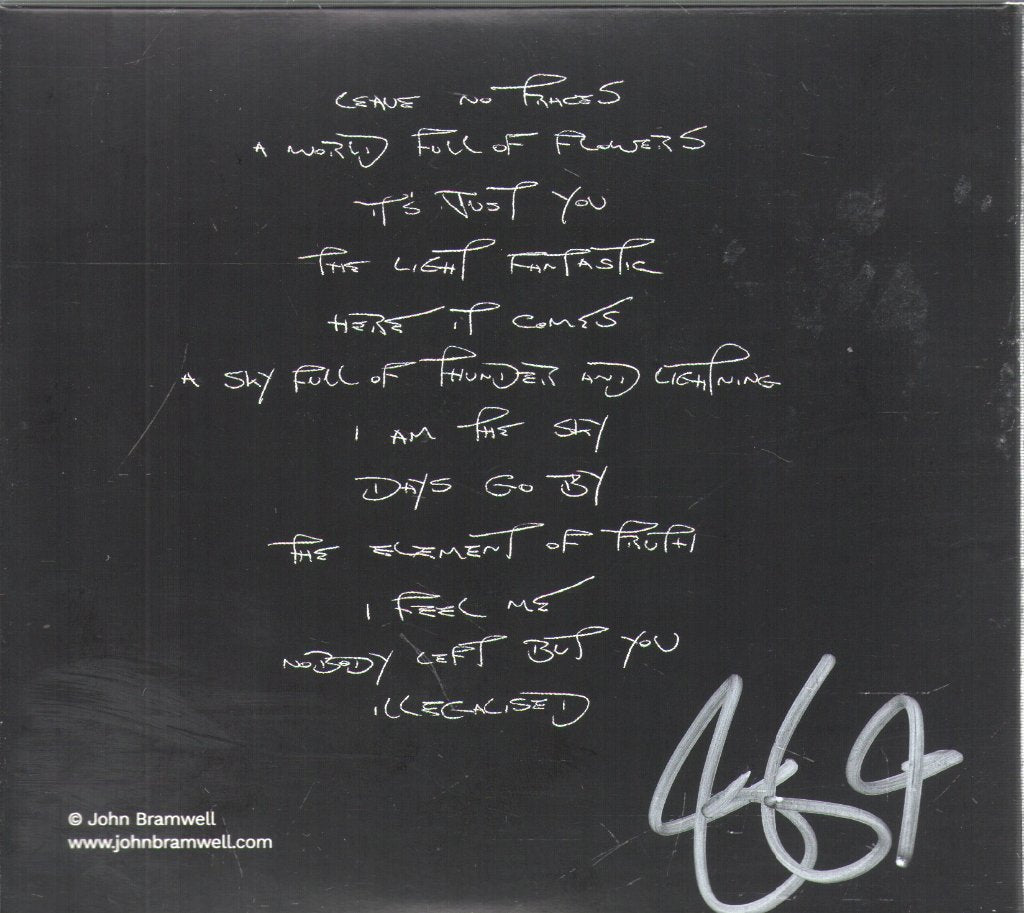 LEAVE NO TRACES
A WORLD FULL OF FLOWERS
IT'S JUST YOU
THE LIGHT FANTASTIC
HERE IT COMES
A SKY FULL OF THUNDER AND LIGHTNING
I AM THE SKY
DAYS GO BY
THE ELEMENT OF TRUTH
I FEEL ME
NOBODY LEFT BUT YOU
ILLEGALISED
© John Bramwell
www.johnbramwell.com